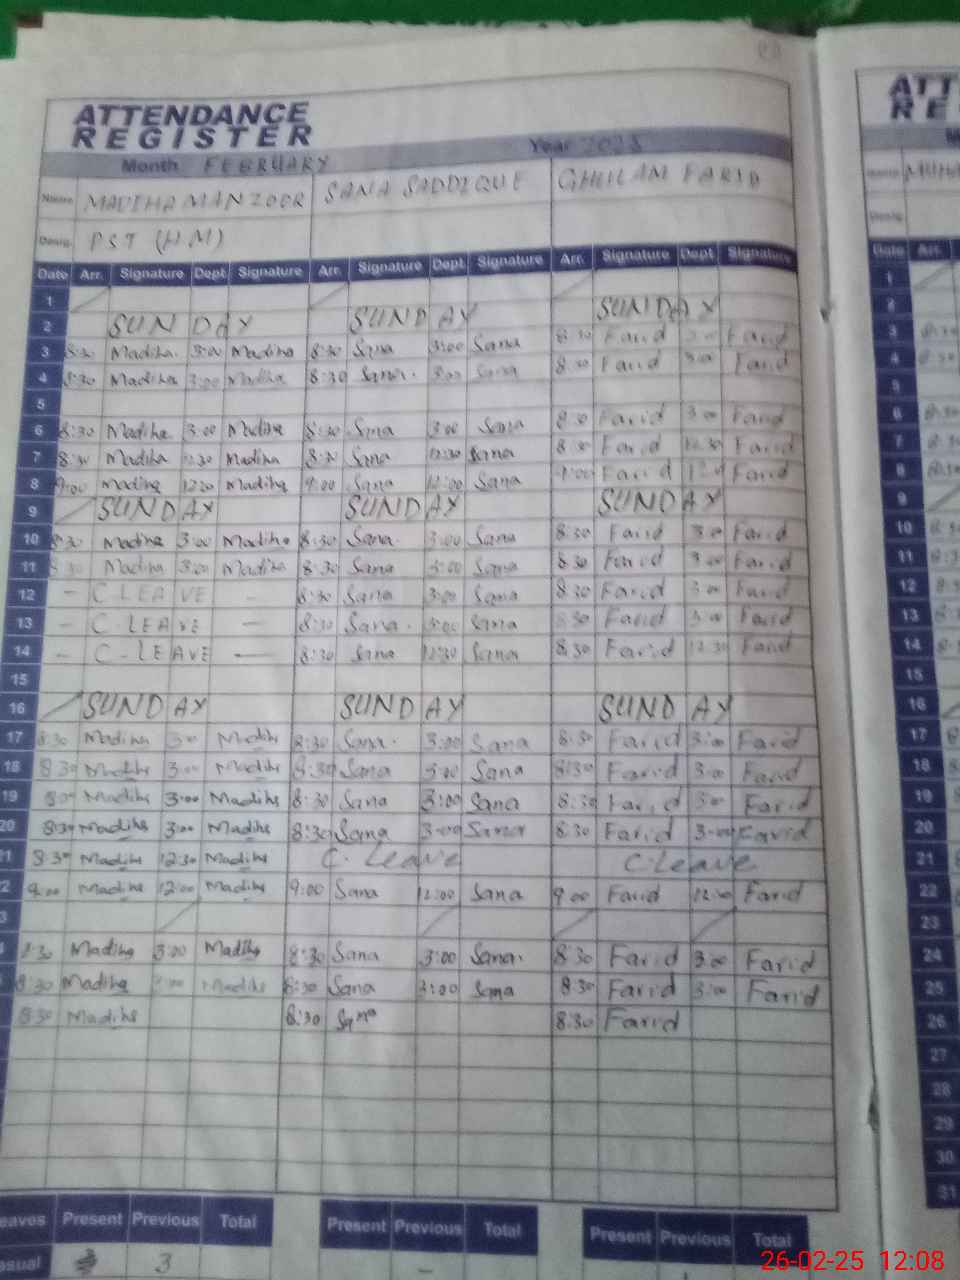 ATTENDANCE
REGISTER
Month FEBRUARY Year
Name MADIHA MANZOOR SANA SADDIQUE GHULAM FARID
Desig. PST (HM)
Date Arr. Signature Dept. Signature Arr. Signature Dept. Signature Arr. Signature Dept. Signature
1
2 SUNDAY SUNDAY SUNDAY
3 8:30 Madiha 3:00 Madiha 8:30 Sana 3:00 Sana 8:30 Farid 3:00 Farid
4 8:30 Madiha 3:00 Madiha 8:30 Sana 3:00 Sana 8:30 Farid 3:00 Farid
5
6 8:30 Madiha 3:00 Madiha 8:30 Sana 3:00 Sana 8:30 Farid 3:00 Farid
7 8:30 Madiha 12:30 Madiha 8:30 Sana 12:30 Sana 8:30 Farid 12:30 Farid
8 9:00 Madiha Madiha 9:00 Sana 12:00 Sana 9:00 Farid Farid
9 SUNDAY SUNDAY SUNDAY
10 8:30 Madiha 3:00 Madiha 8:30 Sana 3:00 Sana 8:30 Farid 3:00 Farid
11 8:30 Madiha 3:00 Madiha 8:30 Sana 3:00 Sana 8:30 Farid 3:00 Farid
12 - C LEAVE - 8:30 Sana 3:00 Sana 8:30 Farid 3:00 Farid
13 - C.LEAVE - 8:30 Sana 3:00 Sana 8:30 Farid 3:00 Farid
14 - C-LEAVE - 8:30 Sana 12:30 Sana 8:30 Farid 12:30 Farid
15
16 SUNDAY SUNDAY SUNDAY
17 8:30 Madiha 3:00 Madiha 8:30 Sana 3:00 Sana 8:30 Farid 3:00 Farid
18 8:30 Madiha 3:00 Madiha 8:30 Sana 3:00 Sana 8:30 Farid 3:00 Farid
19 Madiha 3:00 Madiha 8:30 Sana 3:00 Sana 8:30 Farid 3:00 Farid
20 8:30 Madiha 3:00 Madiha 8:30 Sana 3:00 Sana 8:30 Farid 3:00 Farid
21 8:30 Madiha 12:30 Madiha C. Leave C.Leave
22 9:00 Madiha 12:00 Madiha 9:00 Sana 12:00 Sana 9:00 Farid 12:00 Farid
3
8:30 Madiha 3:00 Madiha 8:30 Sana 3:00 Sana 8:30 Farid 3:00 Farid
8:30 Madiha 3:00 Madiha 8:30 Sana 3:00 Sana 8:30 Farid 3:00 Farid
8:30 Madiha 8:30 Sana 8:30 Farid
eaves Present Previous Total Present Previous Total Present Previous Total
asual 3 3 -
ATT
RE
Date Arr.
1
2
3
4
5
6
7
8
9
10
11
12
13
14
15
16
17
18
19
20
21
22
23
24
25
26
27
28
29
30
31
26-02-25 12:08